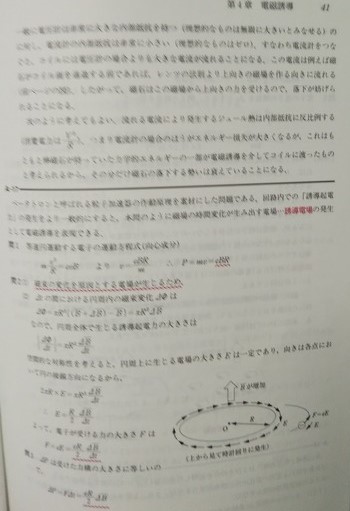 第4章 電磁誘導 41
一般に電圧計は非常に大きな内部抵抗を持つ（理想的なものは無限に大きいとみなせる）の
に対し，電流計の内部抵抗は非常に小さい（理想的なものはゼロ）。すなわち電流計をつな
ぐと，コイルには電圧計の場合よりも大きな電流が流れることになる。この電流は例えば磁
石がコイル面を通過する前であれば，レンツの法則より上向きの磁場を作る向きに流れる
（前ページの図）。したがって，磁石はこの磁場から上向きの力を受けるので，落下が妨げら
れることになる。
次のように考えてもよい。流れる電流により発生するジュール熱は内部抵抗に反比例する
つまり電流計の場合のほうがエネルギー損失が大きくなるが，これはも
ともと棒磁石が持っていた力学的エネルギーの一部が電磁誘導をそしてコイルに渡ったもの
と考えられるから，その分だけ磁石の落下する勢いは衰えていることになる。
ベータトロンと呼ばれる粒子加速器の作動原理を素材にした問題である。回路内での「誘導起電
力」の発生をより一般的にすると，本問のように磁場の時間変化が生み出す電場…誘導電場の発生
として電磁誘導を表現できる。
問1 等速円運動する電子の運動方程式（向心成分）
m v²/R = evB より v = eBR/m ∴ P = mv = eBR
問2 磁束の変化を原因とする電場が生じるため。
Δt の間における円周内の磁束変化 ΔΦ は
ΔΦ = πR²{(B + ΔB) − B} = πR²ΔB
なので，円周全体で生じる誘導起電力の大きさは
|ΔΦ/Δt| = πR² ΔB/Δt
空間的な対称性を考えると，円周上に生じる電場の大きさ E は一定であり，向きは各点にお
いて円の接線方向になるから，
2πR × E = πR² ΔB/Δt
∴ E = R/2 ΔB/Δt
よって，電子が受ける力の大きさ F は
F = eE = eR/2 ΔB/Δt
問3 ΔP は受けた力積の大きさに等しいの
で，
ΔP = FΔt = eR/2 ΔB
B が増加
O R E F = eE
（上から見て時計回りに発生）